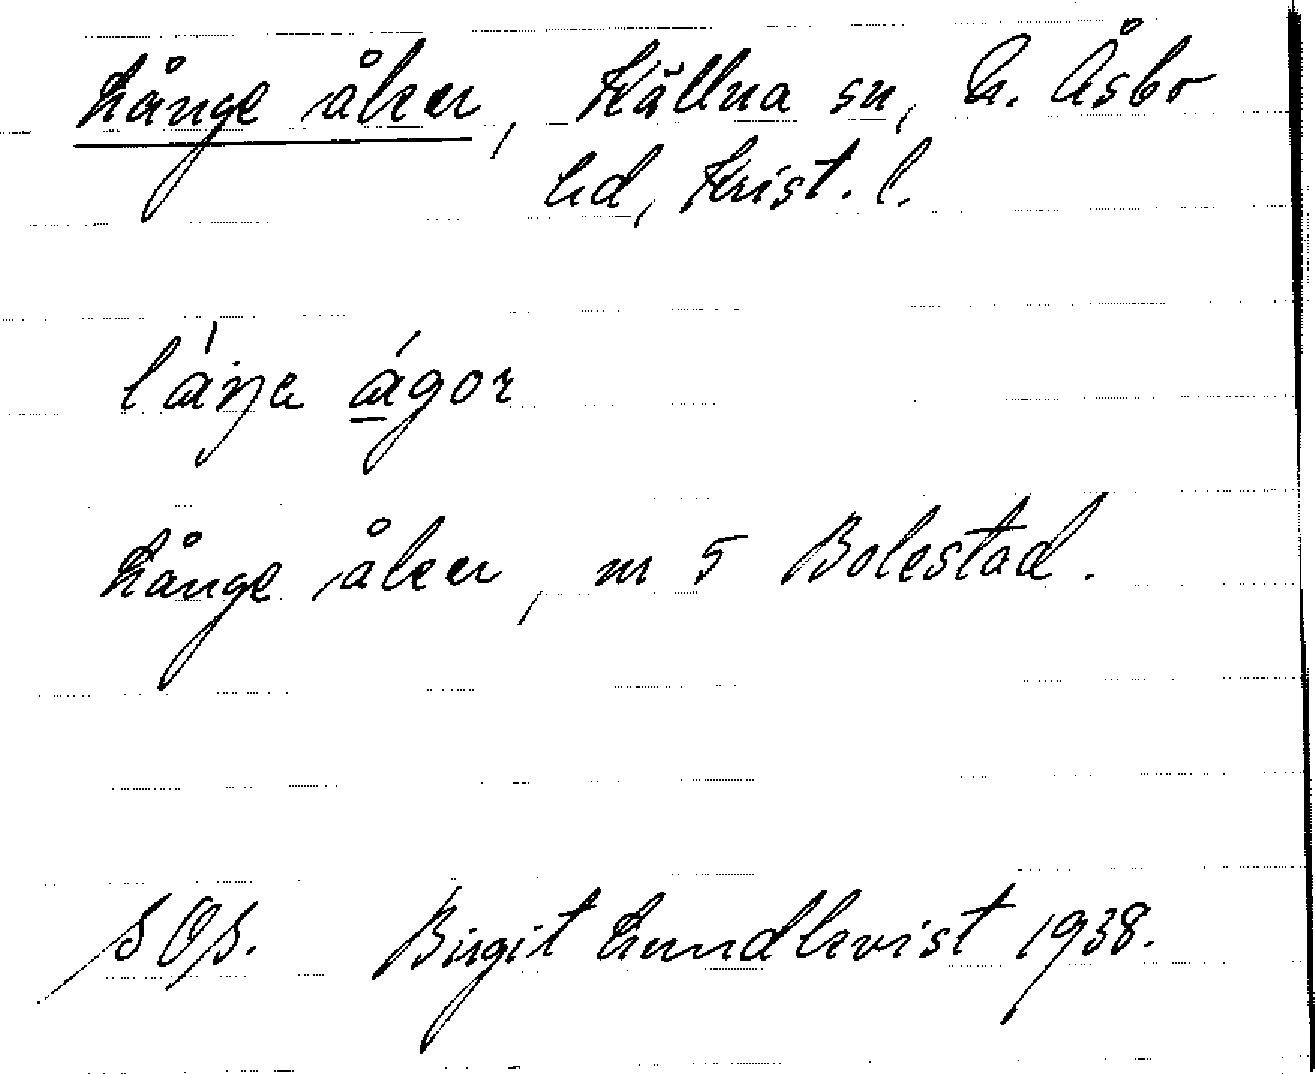 Långe åker, Källna sn, N. Åsbo
hd, Krist. l.
láŋa ágor
Långe åker, nr 5 Bolestad.
SOS. Birgit Lundkvist 1938.